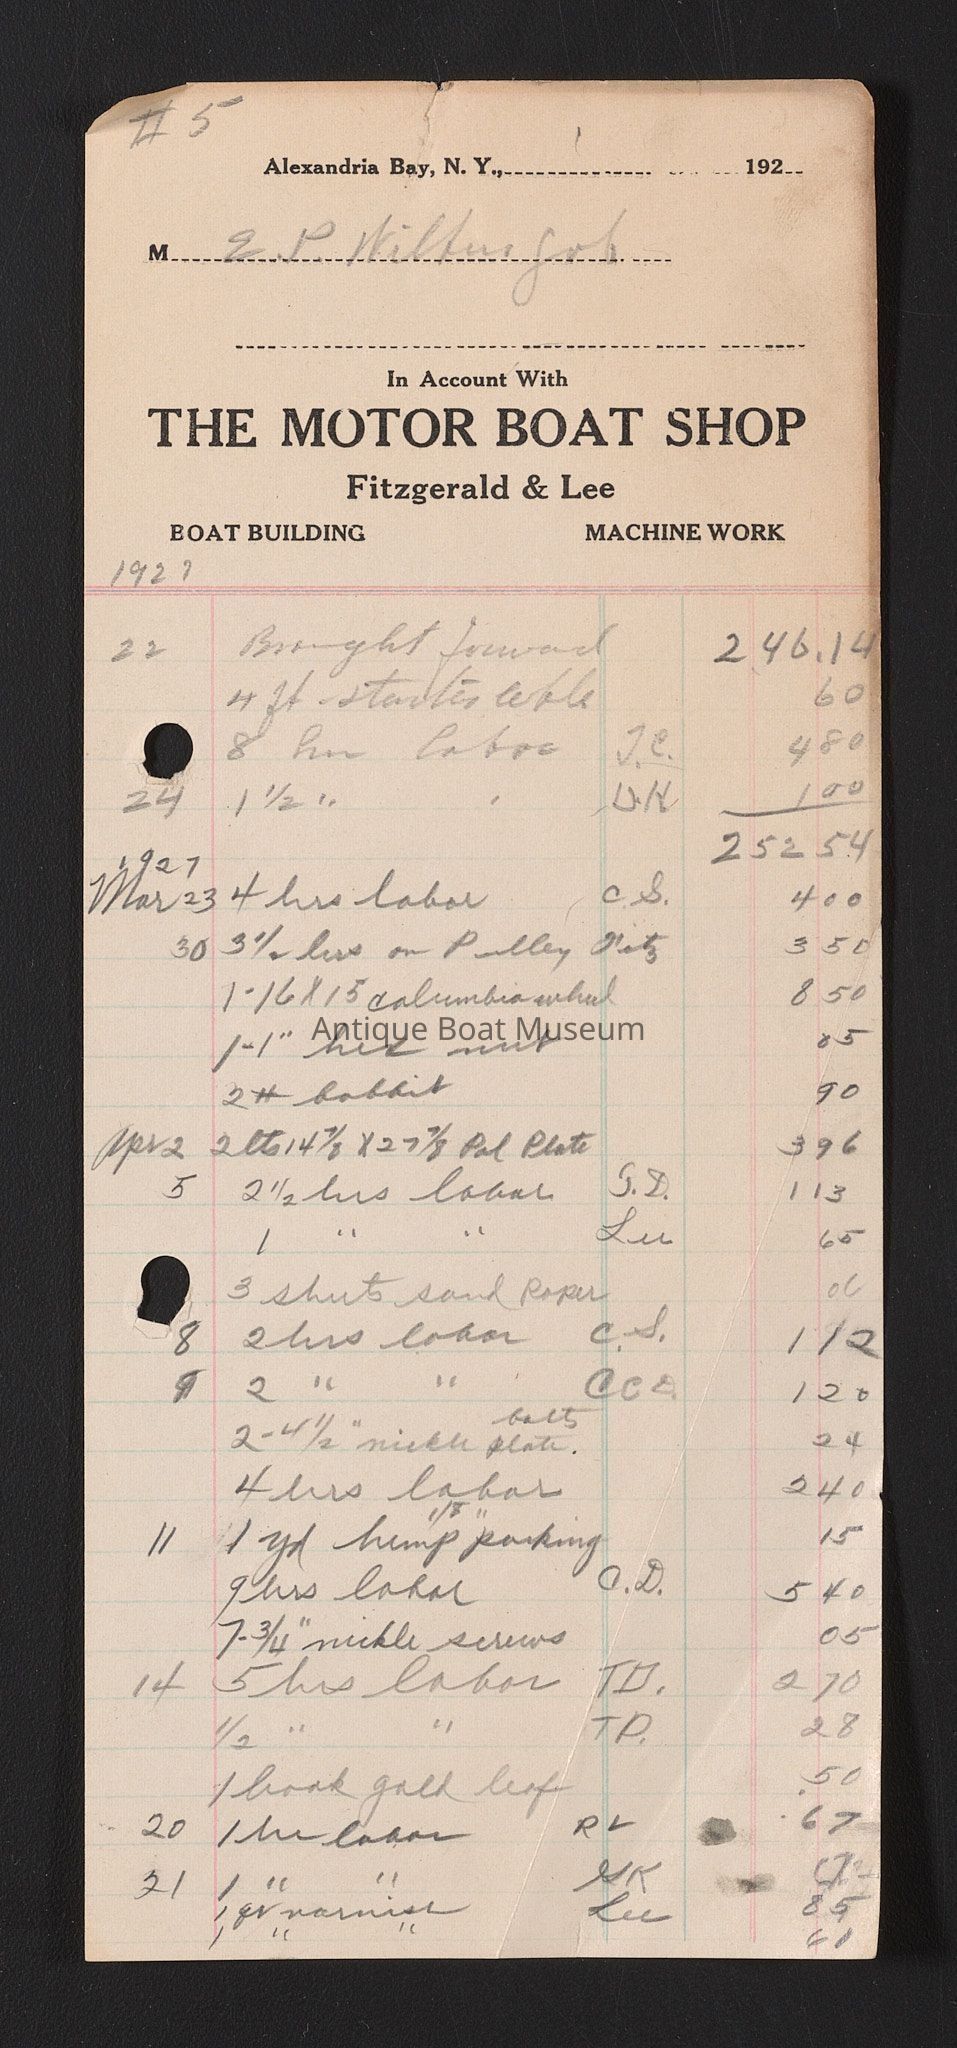 # 5
Alexandria Bay, N. Y., 192
M E. P. Wilbur Job
In Account With
THE MOTOR BOAT SHOP
Fitzgerald & Lee
BOAT BUILDING MACHINE WORK
1927
22 Brought forward 246.14
4 ft starter cable 60
8 hrs labor T.C. 4 80
24 1 1/2 " " D.K 1 00
252 54
1927
Mar 23 4 hrs labor C.S. 4 00
30 3 1/2 hrs on Pulley Fitz 3 50
1-16 X 15 Columbia wheel 8 50
Antique Boat Museum
1-1" hex nut
2# babbit 90
Apr 2 2 lts 14 7/8 X 27 7/8 Pol Plate 3 96
5 2 1/2 hrs labor G.D. 1 13
1 " " Lee 65
3 sheets sand paper
8 2 hrs labor C.S. 1 12
9 2 " " C C D. 1 20
2-4 1/2" nickle plate. bolts 24
4 hrs labor 2 40
11 1 yd 1/8" hemp packing 15
9 hrs labor C.D. 5 40
7-3/4" nickle screws 05
14 5 hrs labor T.D. 2 70
1/2 " " T D. 28
1 book gold leaf .50
20 1 hr labor R L .67
21 1 " " GK
1 qt varnish Lee 85
1 " "